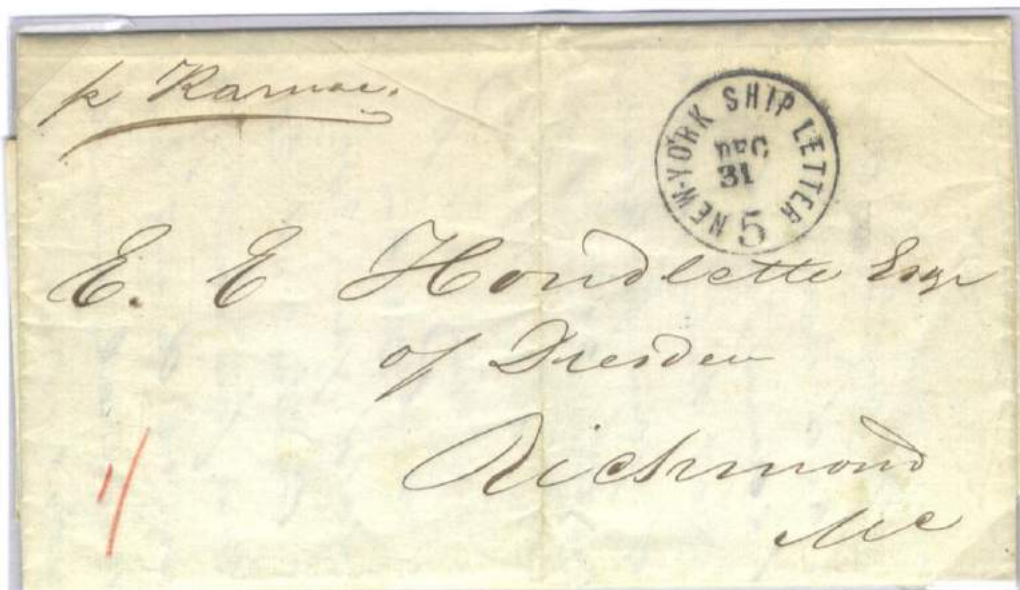 p Karnac.
NEW-YORK SHIP LETTER
DEC
31
5
E. E Houdlette Esqr
of Dresden
Richmond
Me
1/